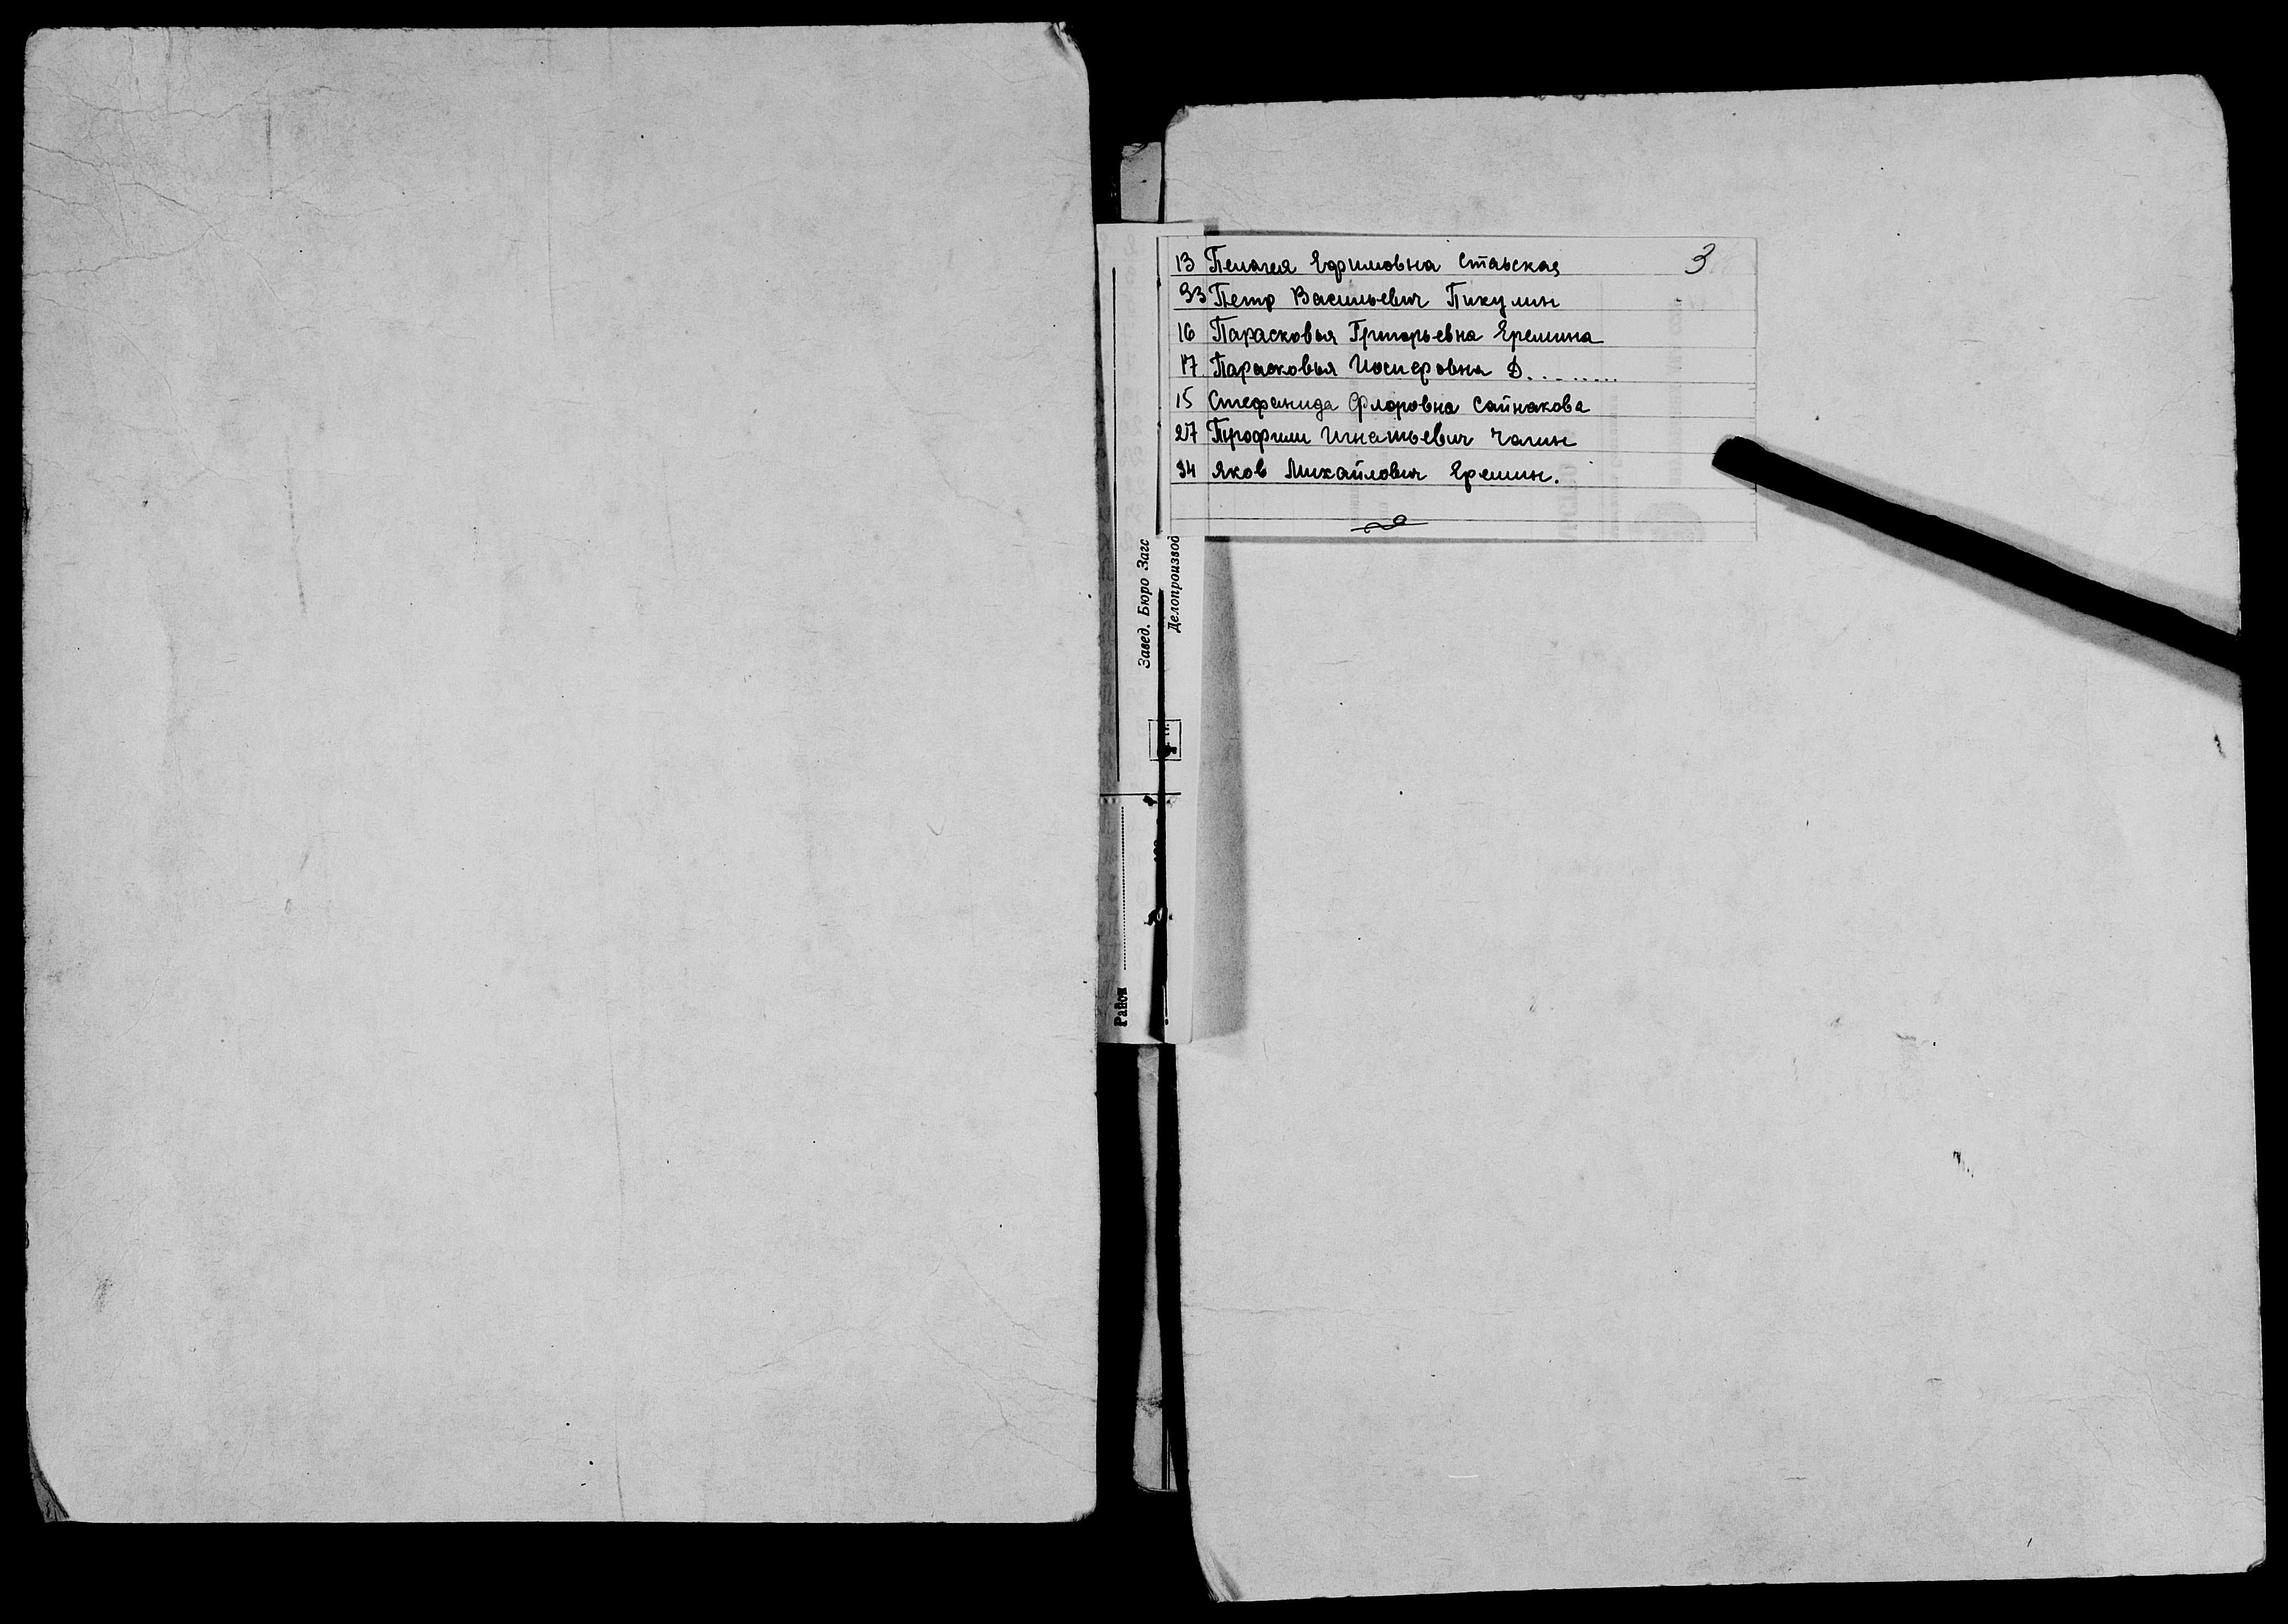 3
13 Пелагея Ефимовна Стаьская
33 Петр Васильевич Пикулин
16 Парасковья Григорьевна Еремина
17 Парасковья Иосиеровна Д.........
15 Стефанида Флоровна Сайнакова
27 Трофим Игнатьевич Чалин
34 Яков Михайлович Еремин.
Завед. Бюро Загс
Делопроизвод
Район